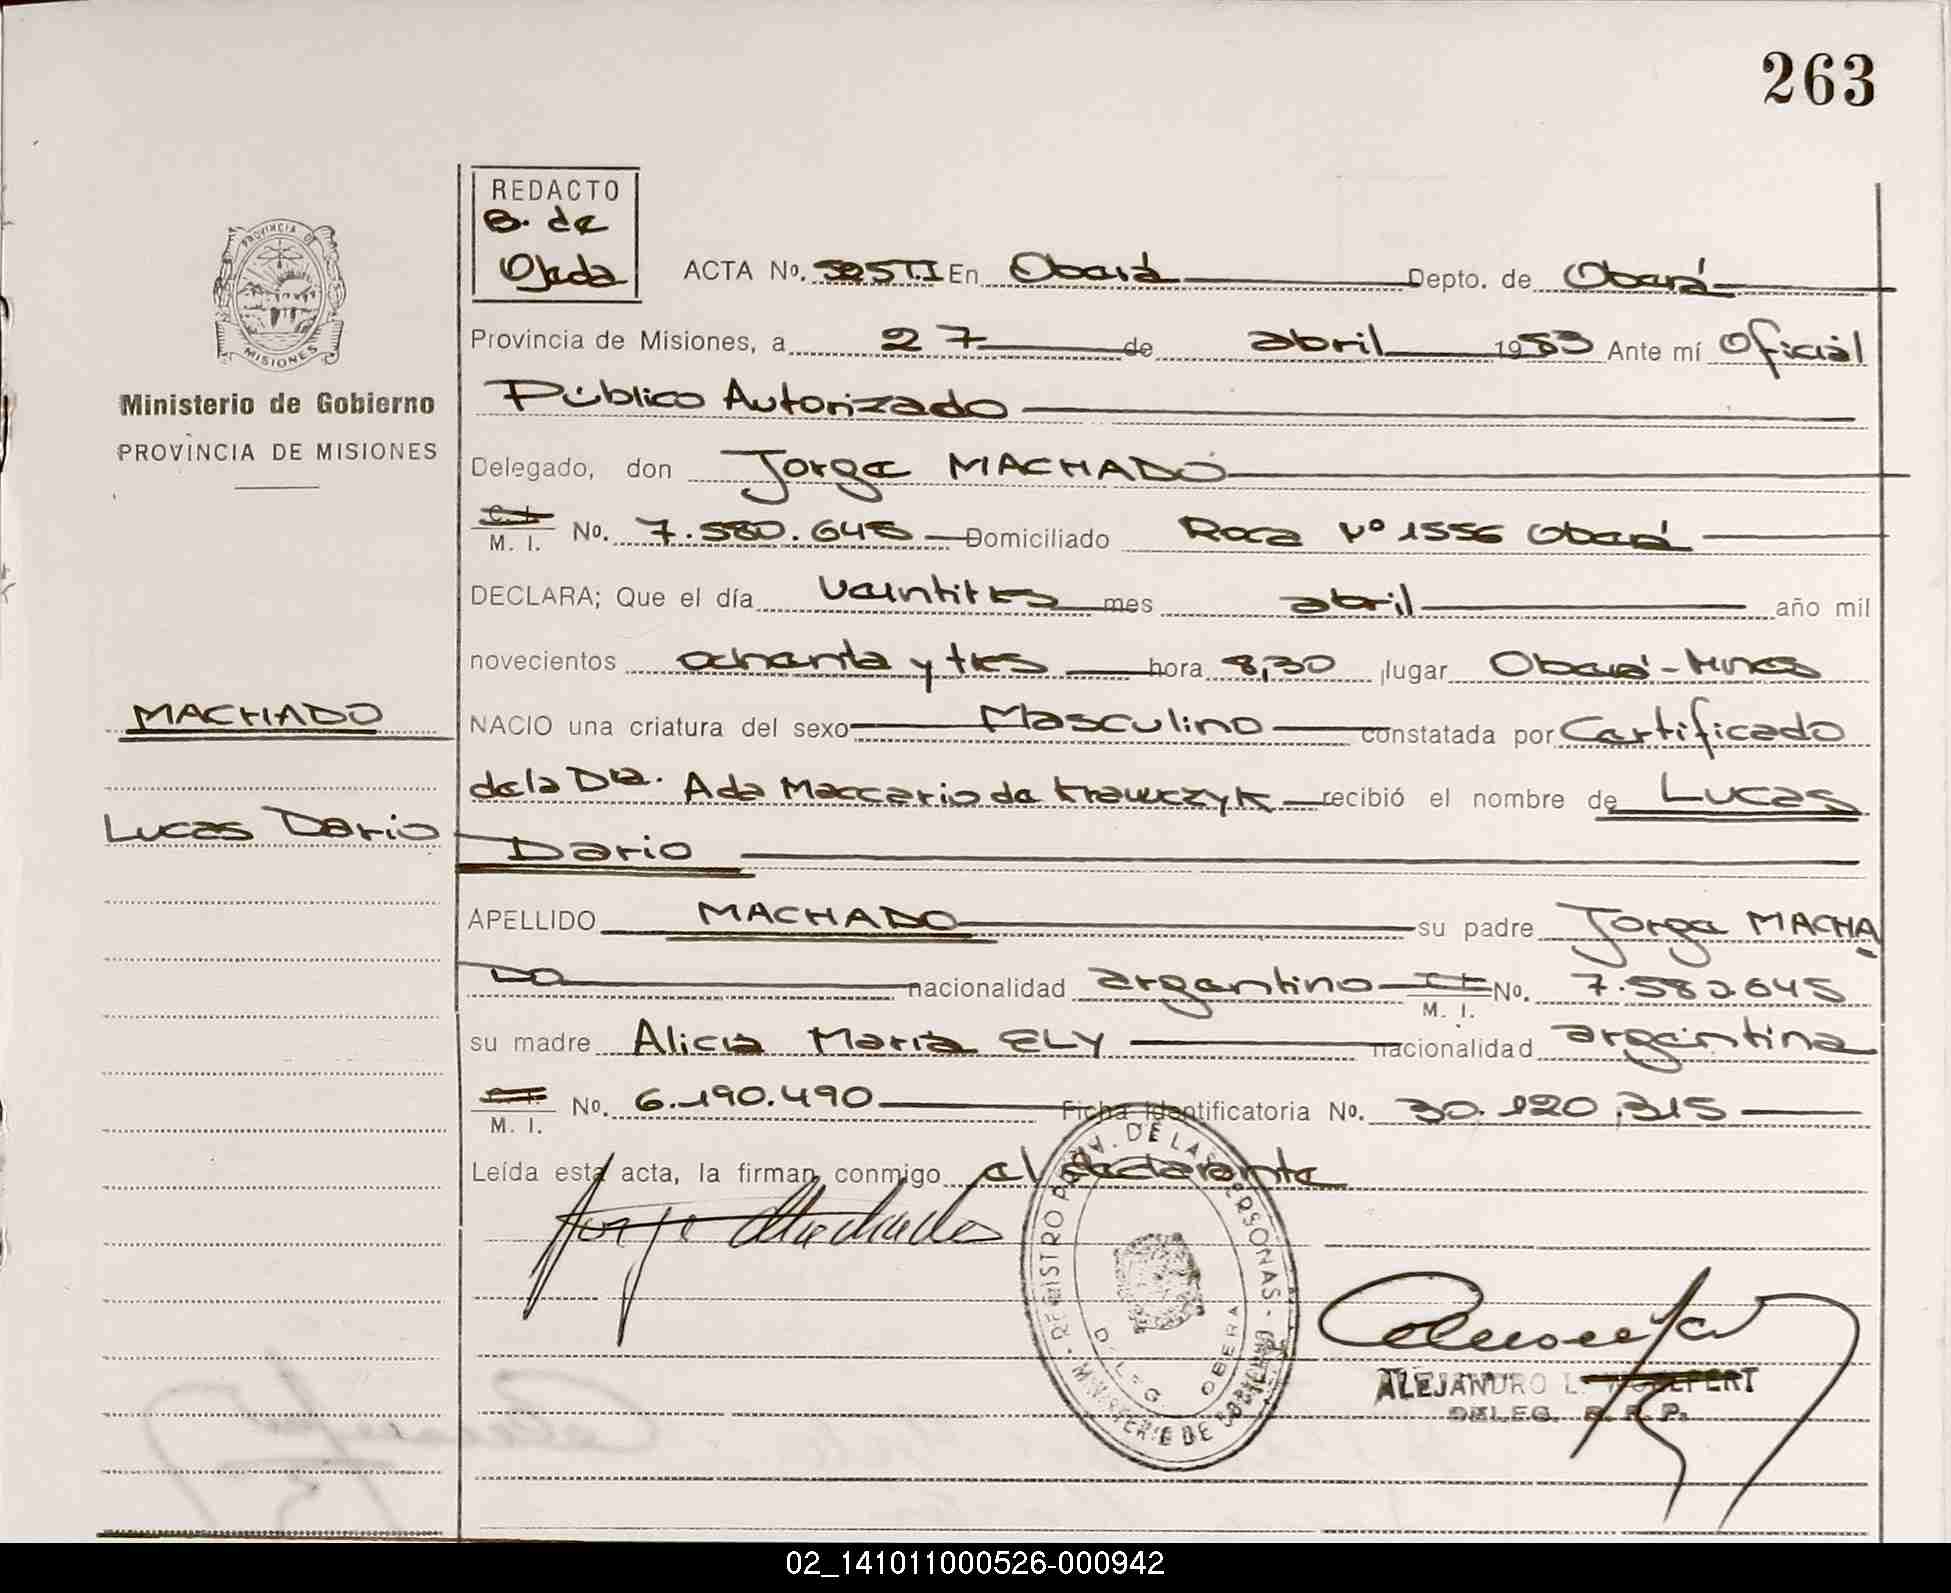 263
REDACTO
B. de
Ojeda
ACTA No. 525T.I En Oberá Depto. de Oberá
Provincia de Misiones, a 27 de abril 1983 Ante mí Oficial
Público Autorizado
Delegado, don Jorge MACHADO
C. I.
M. I. No. 7.580.645 Domiciliado Roca Nº 1556 Oberá
DECLARA; Que el día veintitres mes abril año mil
novecientos ochenta y tres hora 8,30 lugar Oberá-Mnes
NACIO una criatura del sexo Masculino constatada por Certificado
de la Dra. Ada Maccario de Krawczyk recibió el nombre de Lucas
Dario
APELLIDO MACHADO su padre Jorge MACHA
DO nacionalidad argentino C. I. No. 7.580.645
M. I.
su madre Alicia Maria ELY nacionalidad argentina
C. I.
M. I. No. 6.190.490 Ficha Identificatoria No. 30.120.315
Leída esta acta, la firman conmigo el declarante
Jorge Machado
REGISTRO PROV. DE LAS PERSONAS - MINISTERIO DE GOBIERNO
DELEG. OBERA
ALEJANDRO L. WOLFERT
DELEG. R. P. P.
PROVINCIA DE
MISIONES
Ministerio de Gobierno
PROVINCIA DE MISIONES
MACHADO
Lucas Dario
02_141011000526-000942